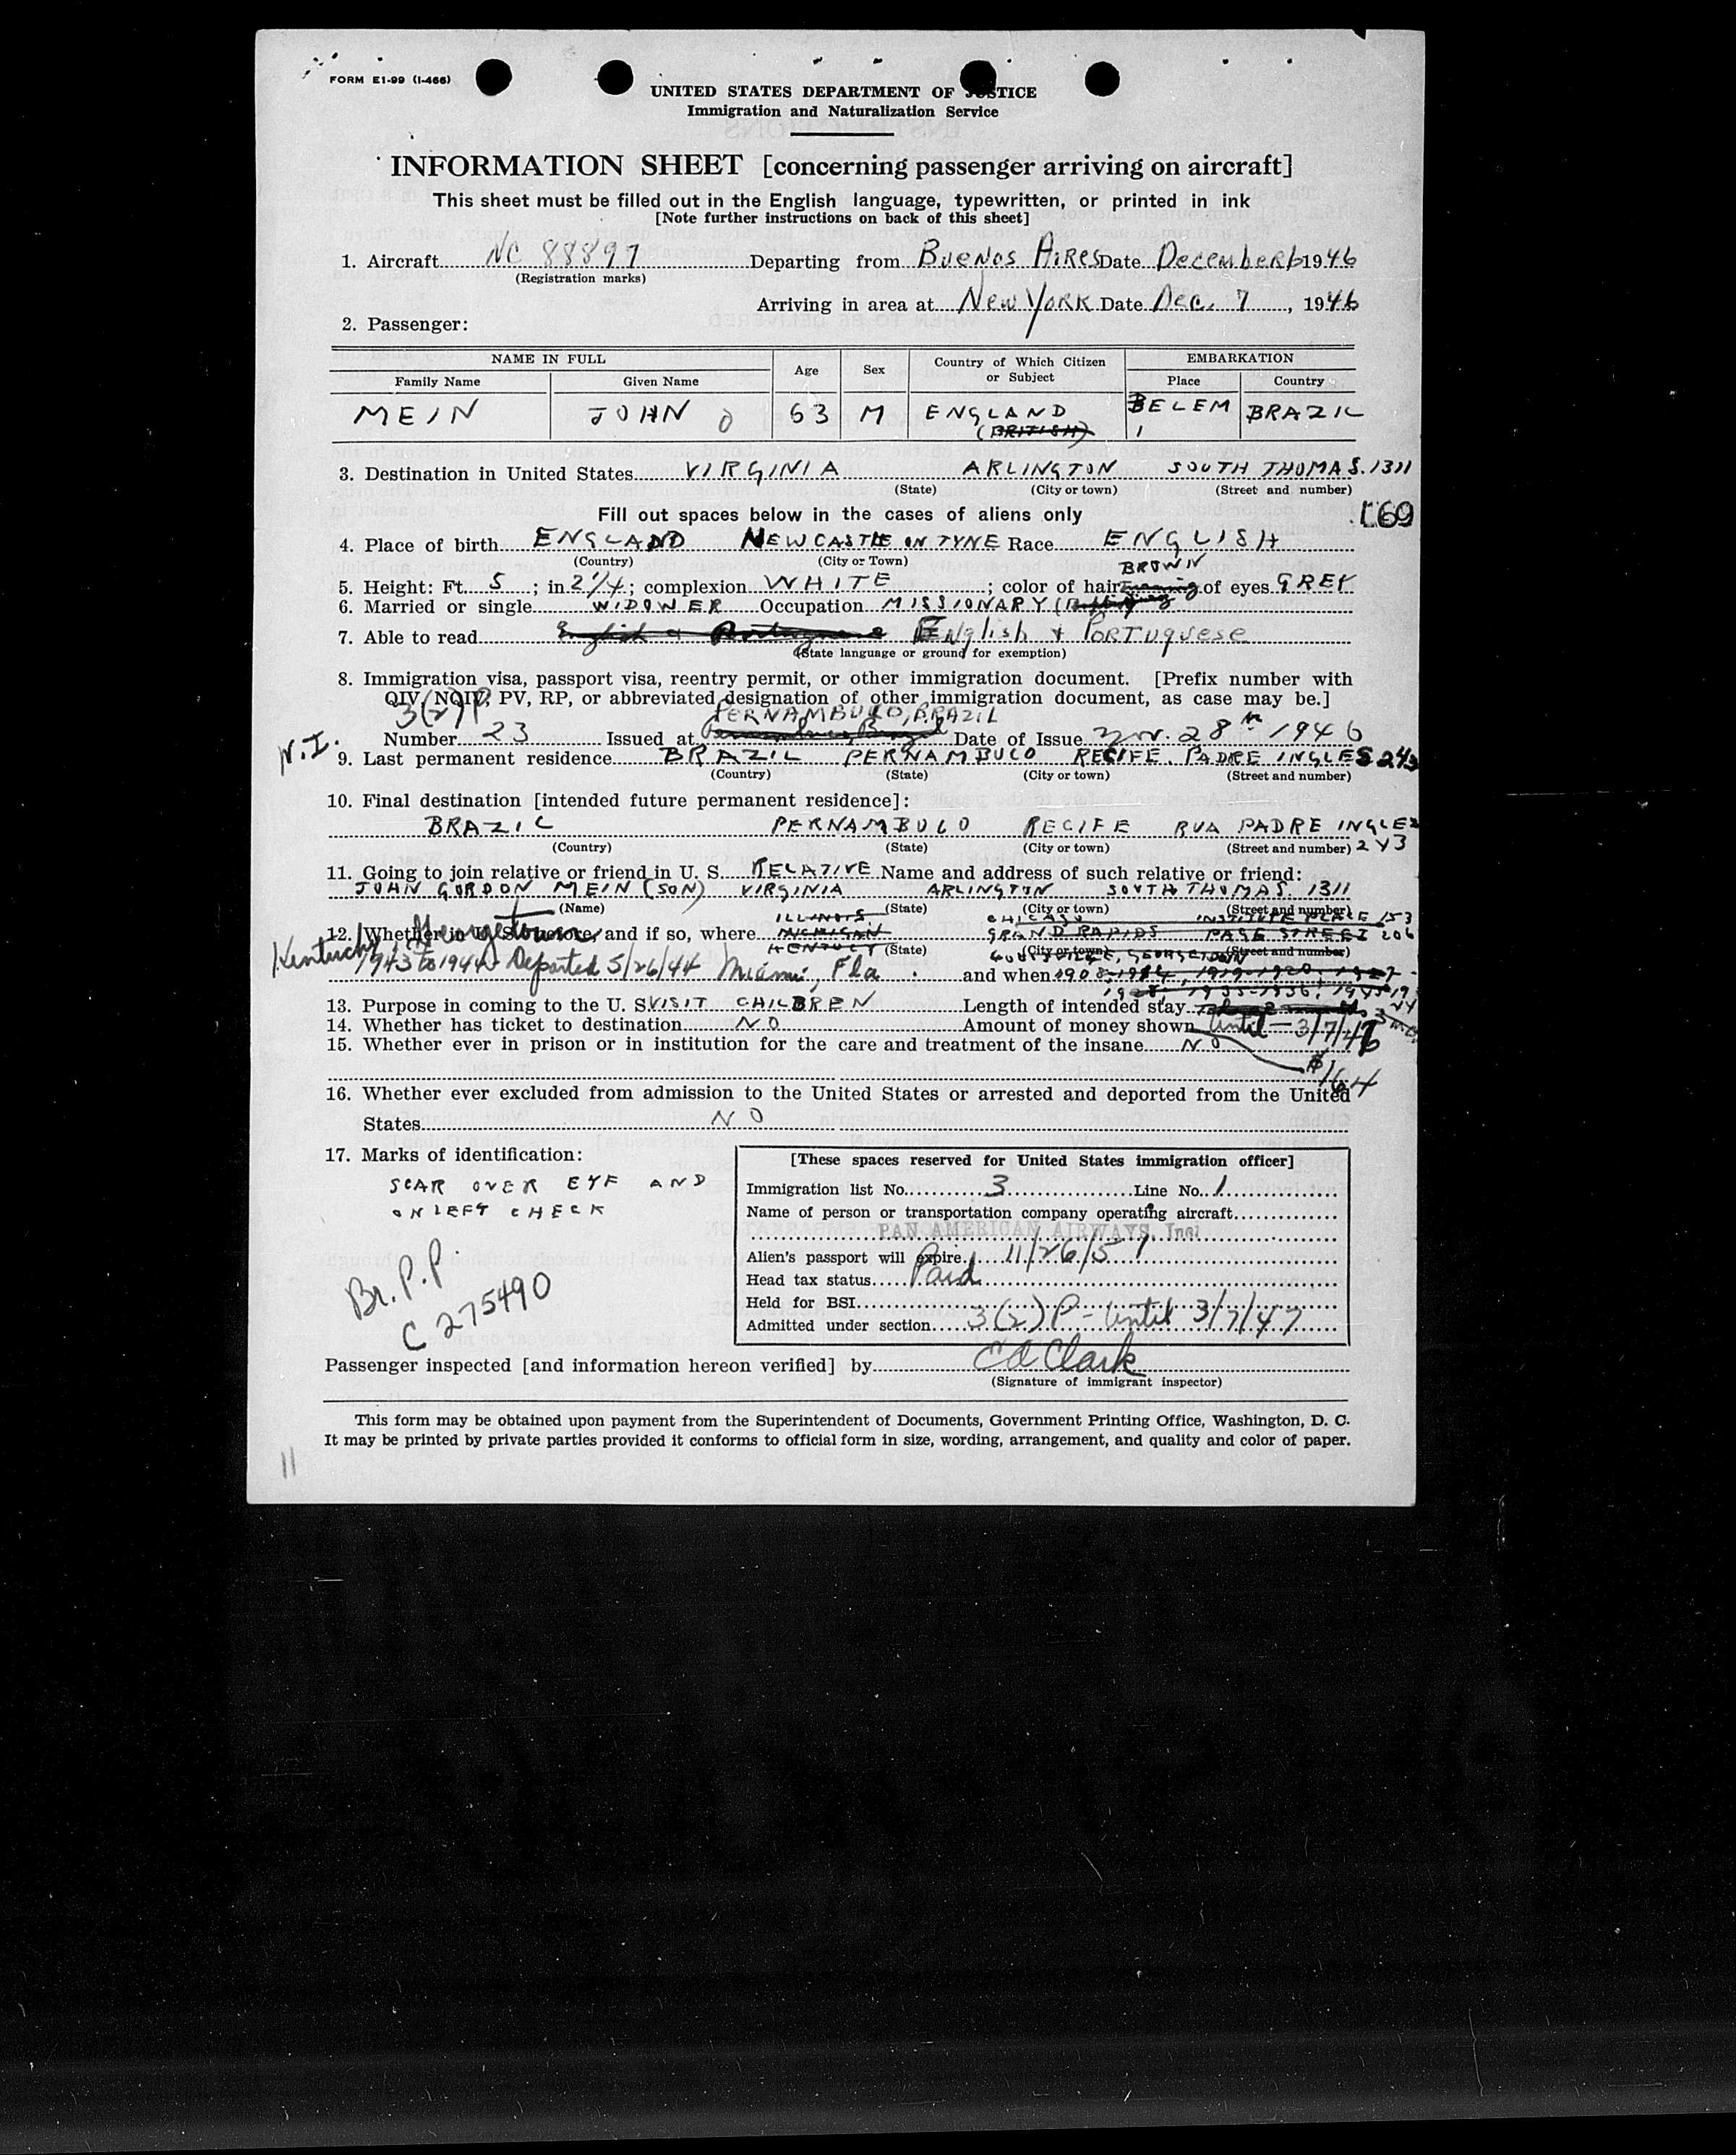 FORM E1-99 (I-466)
UNITED STATES DEPARTMENT OF JUSTICE
Immigration and Naturalization Service
INFORMATION SHEET [concerning passenger arriving on aircraft]
This sheet must be filled out in the English language, typewritten, or printed in ink
[Note further instructions on back of this sheet]
1. Aircraft NC 88897 Departing from BUENOS AIRES Date December 6 1946
(Registration marks)
Arriving in area at New York Date Dec. 7, 1946
2. Passenger:
NAME IN FULL Age Sex Country of Which Citizen or Subject EMBARKATION
Family Name Given Name Place Country
MEIN JOHN 0 63 M ENGLAND BELEM BRAZIL
(BRITISH)
3. Destination in United States VIRGINIA ARLINGTON SOUTH THOMAS. 1311
(State) (City or town) (Street and number)
Fill out spaces below in the cases of aliens only
4. Place of birth ENGLAND NEWCASTLE ON TYNE Race ENGLISH
(Country) (City or Town)
BROWN
5. Height: Ft. 5; in. 2 1/4; complexion WHITE; color of hair of eyes GREY
6. Married or single WIDOWER Occupation MISSIONARY
7. Able to read English & Portuguese English & PORTUGUESE
(State language or ground for exemption)
8. Immigration visa, passport visa, reentry permit, or other immigration document. [Prefix number with
QIV, NQIV, PV, RP, or abbreviated designation of other immigration document, as case may be.]
3(2)P PERNAMBUCO, BRAZIL
Number 23 Issued at Date of Issue 28 1946
N.I.
9. Last permanent residence BRAZIL PERNAMBUCO RECIFE. PADRE INGLES 243
(Country) (State) (City or town) (Street and number)
10. Final destination [intended future permanent residence]:
BRAZIL PERNAMBUCO RECIFE RUA PADRE INGLEZ
(Country) (State) (City or town) (Street and number) 243
11. Going to join relative or friend in U. S. RELATIVE Name and address of such relative or friend:
JOHN GORDON MEIN (SON) VIRGINIA ARLINGTON SOUTH THOMAS. 1311
(Name) (State) (City or town) (Street and number)
ILLINOIS CHICAGO INSTITUTE PLACE 153
12. Whether in U. S. before, and if so, where MICHIGAN GRAND RAPIDS PAGE STREET 206
Kentucky, Georgetown
(State) (City or town) (Street and number)
1943 to 1944 Departed 5/26/44 Miami, Fla. and when
13. Purpose in coming to the U. S. VISIT CHILDREN Length of intended stay
14. Whether has ticket to destination NO Amount of money shown Until - 3/7/47
15. Whether ever in prison or in institution for the care and treatment of the insane NO
$164
16. Whether ever excluded from admission to the United States or arrested and deported from the United
States NO
17. Marks of identification:
SCAR OVER EYE AND
ON LEFT CHECK
Br. P.P.
C 275490
[These spaces reserved for United States immigration officer]
Immigration list No. 3 Line No. 1
Name of person or transportation company operating aircraft
PAN AMERICAN AIRWAYS, Inc.
Alien's passport will expire 11/26/51
Head tax status Paid
Held for BSI
Admitted under section 3(2)P - Until 3/7/47
Passenger inspected [and information hereon verified] by Ed Clark
(Signature of immigrant inspector)
This form may be obtained upon payment from the Superintendent of Documents, Government Printing Office, Washington, D. C.
It may be printed by private parties provided it conforms to official form in size, wording, arrangement, and quality and color of paper.
11